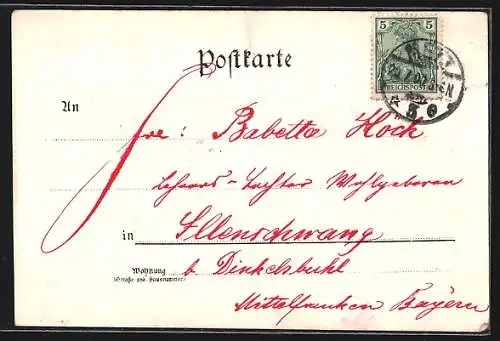 5 5
REICHSPOST
Postkarte
An
Fre: Babetta Hock
Lehrers-Tochter Wohlgeboren
in Illenschwang
Wohnung
(Straße und Hausnummer)
b. Dinkelsbühl
Mittelfranken Bayern